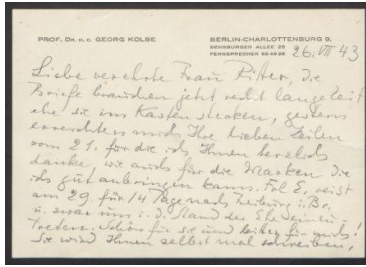 PROF. DR. H. C. GEORG KOLBE
BERLIN-CHARLOTTENBURG 9,
SENSBURGER ALLEE 25
FERNSPRECHER
26. VII 43
Liebe verehrte Frau Ritter, die
Briefe brauchen jetzt recht lange Zeit
ehe sie im Kasten stecken, gestern
erreichten mich Ihre lieben Zeilen
vom 21. für die ich Ihnen herzlich
danke wie auch für die Marken die
ich gut anbringen kann. Frl E. reist
am 29. für 14 Tage nach Freiburg i. Br.
u. zwar um i. d. Stand der Ehe
treten. Schön für sie und bitter für mich!
Sie wird Ihnen selbst mal schreiben,